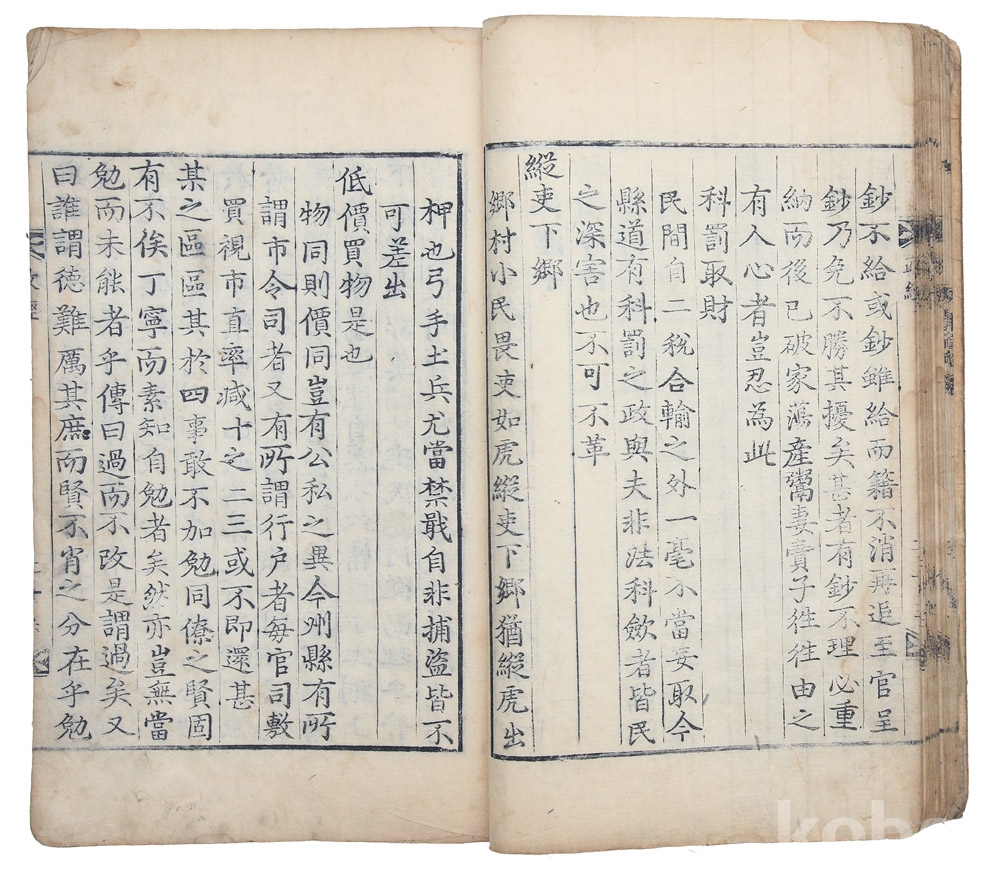 政經
鈔不給或鈔雖給而籍不消再追至官呈
鈔乃免不勝其擾矣甚者有鈔不理必重
納而後已破家蕩產鬻妻賣子徃徃由之
有人心者豈忍為此
科罰取財
民間自二稅合輸之外一毫不當妄取今
縣道有科罰之政與夫非法科歛者皆民
之深害也不可不革
縱吏下鄉
鄉村小民畏吏如虎縱吏下鄉猶縱虎出
柙也弓手土兵尤當禁戢自非捕盜皆不
可差出
低價買物是也
物同則價同豈有公私之異今州縣有所
謂市令司者又有所謂行户者每官司敷
買視市直率减十之二三或不即還甚
某之區區其於四事敢不加勉同僚之賢固
有不俟丁寧而素知自勉者矣然亦豈無當
勉而未能者乎傳曰過而不改是謂過矣又
曰誰謂德難厲其庶而賢不肖之分在乎勉